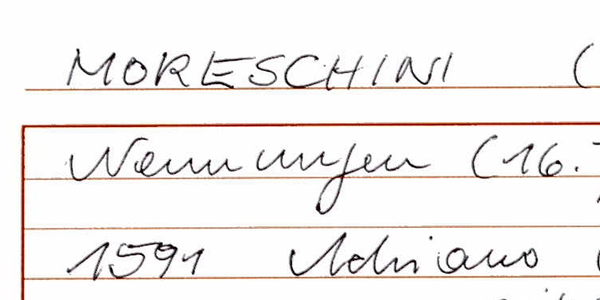 MORESCHINI (
Nennungen (16.
1591 Adriano (